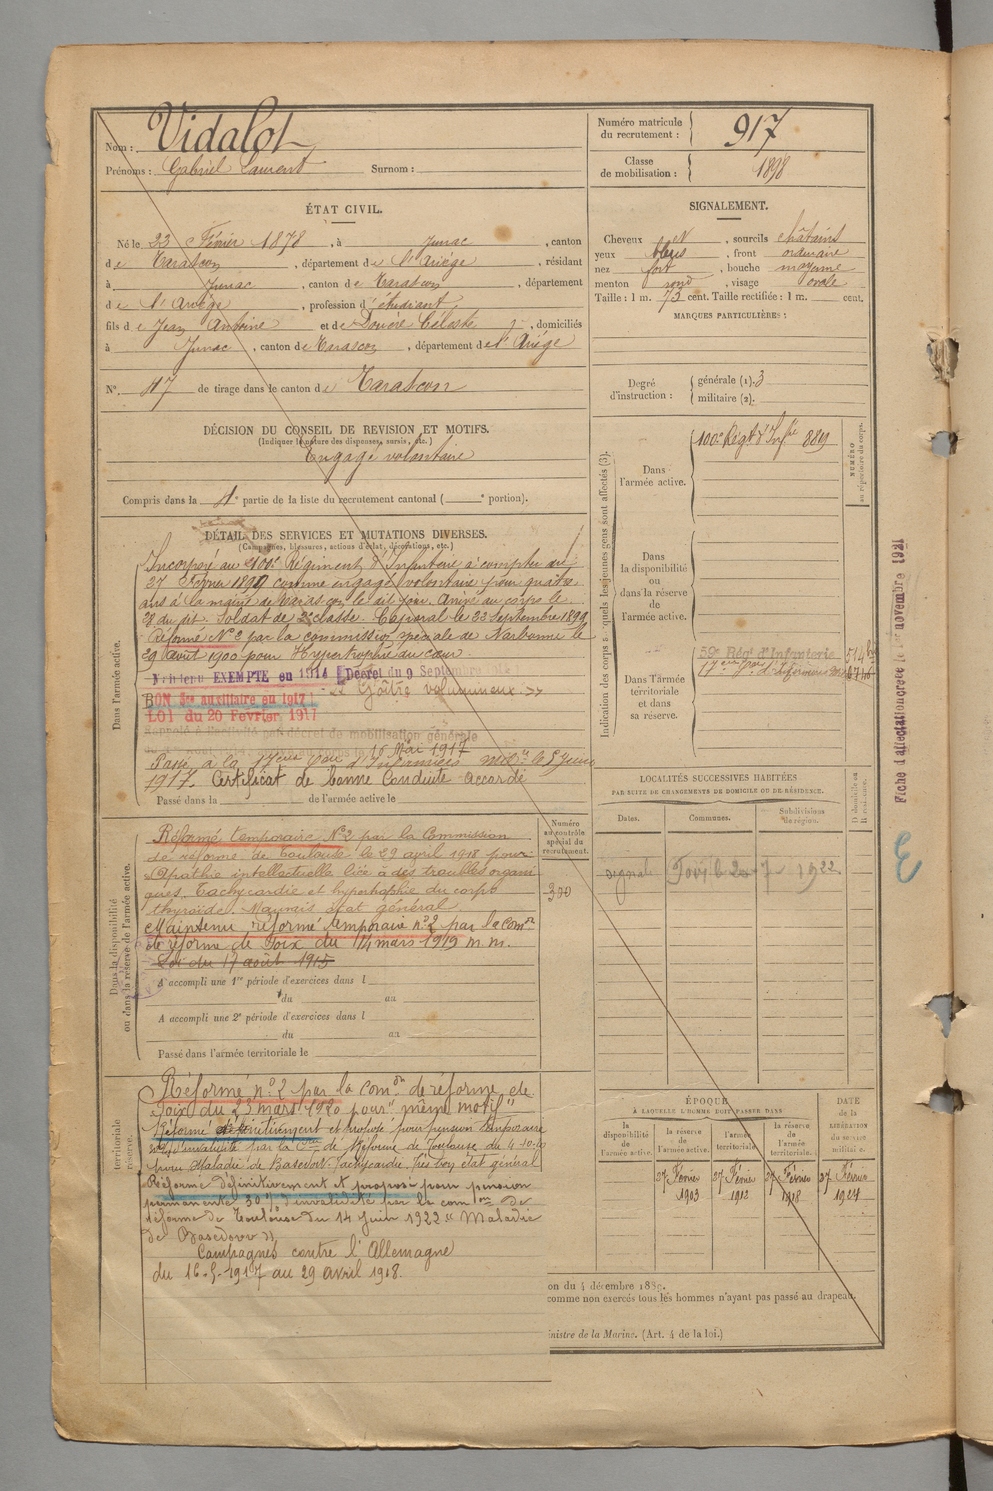 Nom : Vidalot
Prénoms : Gabriel Laurent Surnom :
Numéro matricule du recrutement : 917
Classe de mobilisation : 1898
ÉTAT CIVIL.
Né le 23 Février 1878, à Junac, canton
de Tarascon, département de l'Ariège, résidant
à Junac, canton de Tarascon, département
de l'Ariège, profession d'étudiant,
fils de Jean Antoine et de Doucère Céleste, domiciliés
à Junac, canton de Tarascon, département de l'Ariège
N° 47 de tirage dans le canton de Tarascon
SIGNALEMENT.
Cheveux N, sourcils châtains
yeux bleus, front ordinaire
nez fort, bouche moyenne
menton rond, visage ovale
Taille : 1 m. 73 cent. Taille rectifiée : 1 m. cent.
MARQUES PARTICULIÈRES :
Degré d'instruction : générale (1). 3
militaire (2).
DÉCISION DU CONSEIL DE REVISION ET MOTIFS.
(Indiquer la nature des dispenses, sursis, etc.)
Engagé volontaire
Compris dans la 4e partie de la liste du recrutement cantonal ( e portion).
DÉTAIL DES SERVICES ET MUTATIONS DIVERSES.
(Campagnes, blessures, actions d'éclat, décorations, etc.)
Dans l'armée active.
Incorporé au 100e Régiment d'Infanterie à compter du
27 Février 1899 comme engagé volontaire pour quatre
ans à la mairie de Tarascon le dit jour. Arrivé au corps le
28 du dit. Soldat de 2e classe. Caporal le 23 Septembre 1899
Réformé N° 2 par la commission spéciale de Narbonne le
29 août 1900 pour Hypertrophie du cœur.
Maintenu EXEMPTE en 1914 Décret du 9 Septembre 1914
"Goitre volumineux"
BON sce auxiliaire en 1917
LOI du 20 Fevrier 1917
Rappelé à l'activité par décret de mobilisation générale
du 1er Août 1914 arrivé au corps le 16 Mai 1917
Passé à la 17eme Son d'Infirmiers mres le 5 Juin
1917. Certificat de bonne Conduite accordé
Passé dans la de l'armée active le
Dans la disponibilité ou dans la réserve de l'armée active.
Réformé temporaire N°2 par la Commission
de réforme de Toulouse le 29 avril 1918 pour
Apathie intellectuelle liée à des troubles organi
ques. Tachycardie et hypertrophie du corps
thyroïde. Mauvais état général.
Maintenu réformé temporaire n°2 par la comon
de réforme de Foix du 14 mars 1919 m.m.
Loi du 17 août 1915
A accompli une 1re période d'exercices dans l
du au
A accompli une 2e période d'exercices dans l
du au
Passé dans l'armée territoriale le
Numéro au contrôle spécial du recrutement.
300
territoriale
réserve.
Réformé n° 2 par la comon de réforme de
Foix du 23 mars 1920 pour "même motif"
Réformé définitivement et proposé pour pension temporaire
d'invalidité par la Con de Réforme de Toulouse du 4-10-20
pour Maladie de Basedow. Tachycardie, Très bon état général
Réformé définitivement et proposé pour pension
permanente 30% d'invalidité par la comon de
réforme de Toulouse du 14 juin 1922 "Maladie
de Basedow"
Campagnes contre l'Allemagne
du 16-5-1917 au 29 avril 1918.
Indication des corps auxquels les jeunes gens sont affectés (3).
NUMÉRO au répertoire du corps.
Dans l'armée active. 100e Régt d'Infrie 889
Dans la disponibilité ou dans la réserve de l'armée active.
Dans l'armée territoriale et dans sa réserve.
59e Rég. d'Infanterie
17eme Son d'Infirmiers
LOCALITÉS SUCCESSIVES HABITÉES
PAR SUITE DE CHANGEMENTS DE DOMICILE OU DE RÉSIDENCE.
Dates. Communes. Subdivisions de région. D domicile ou R résidence.
signalé 7 1922
ÉPOQUE
À LAQUELLE L'HOMME DOIT PASSER DANS
la disponibilité de l'armée active. la réserve de l'armée active. l'armée territoriale. la réserve de l'armée territoriale. DATE de la LIBÉRATION du service militaire.
27 Février 1903 27 Février 1912 27 Février 1918 27 Février 1924
on du 4 décembre 1889.
comme non exercés tous les hommes n'ayant pas passé au drapeau.
inistre de la Marine. (Art. 4 de la loi.)
Fiche d'affectation créée le novembre 1921
E